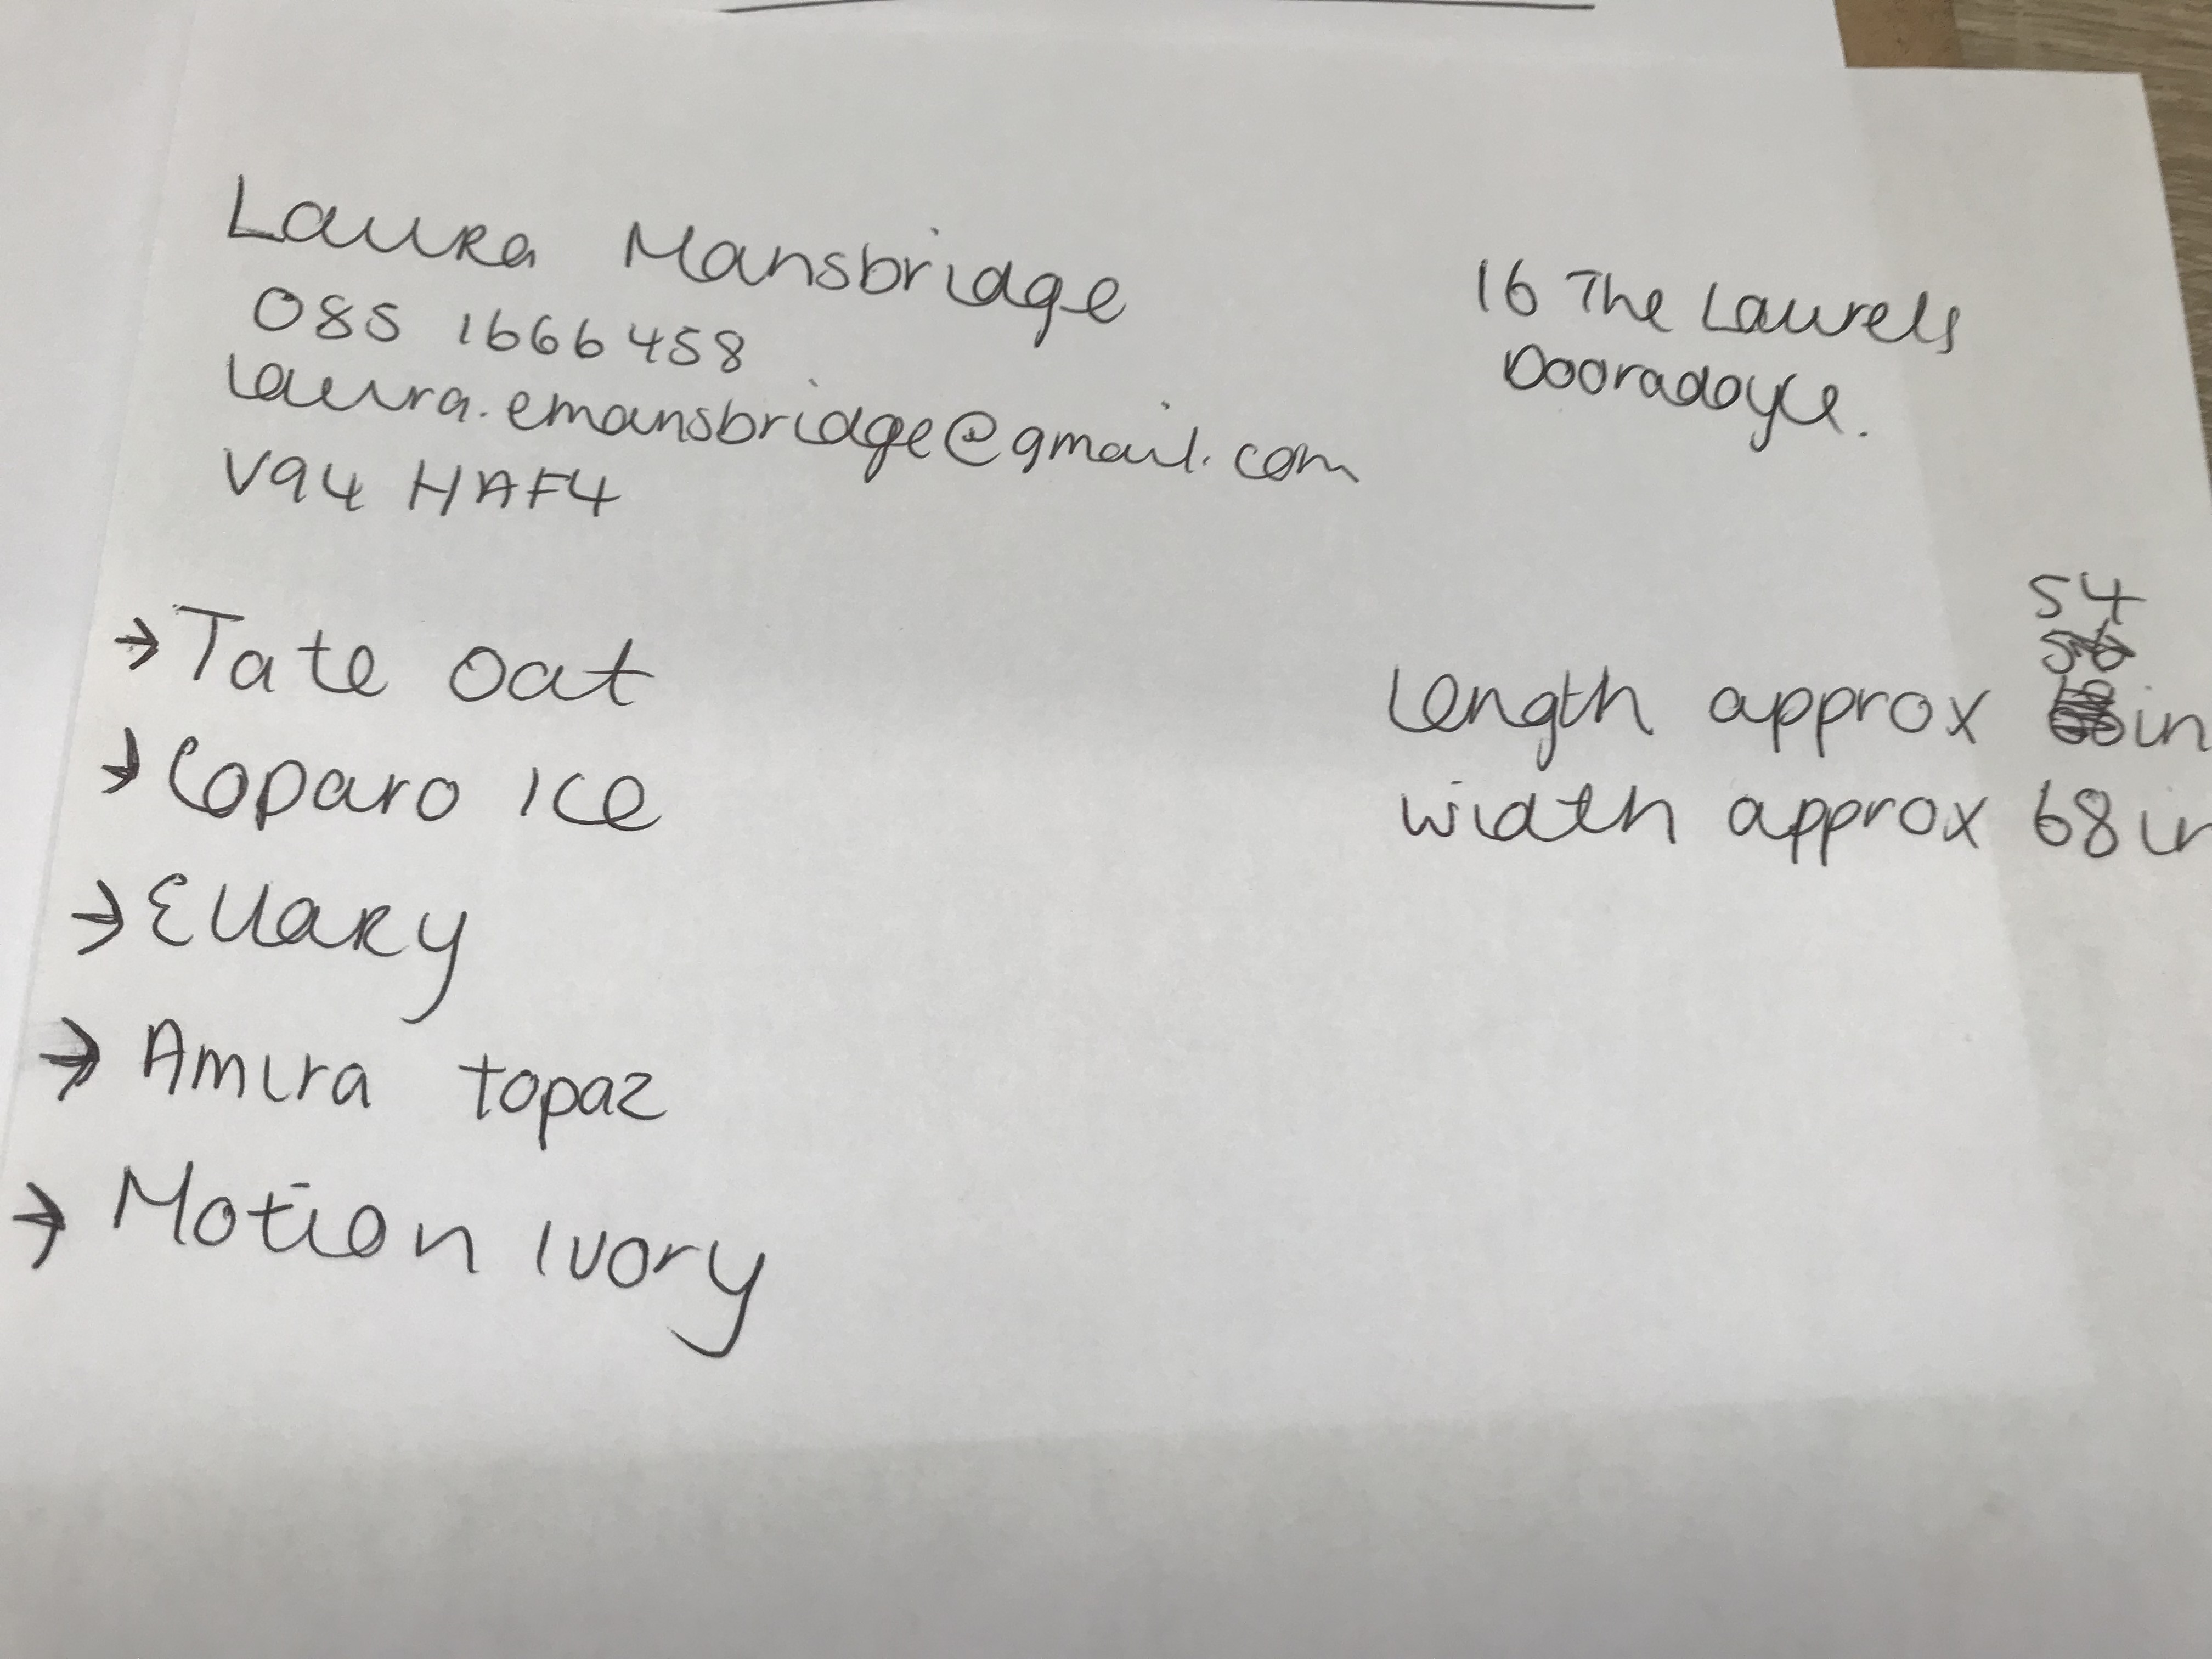 Laura Mansbridge
085 1666458
laura.emansbridge@gmail.com
V94 HAF4
16 The Laurels
Dooradoyle.
→ Tate oat
→ Coparo ice
→ Ellary
→ Amira topaz
→ Motion ivory
54
length approx in
width approx 68 in